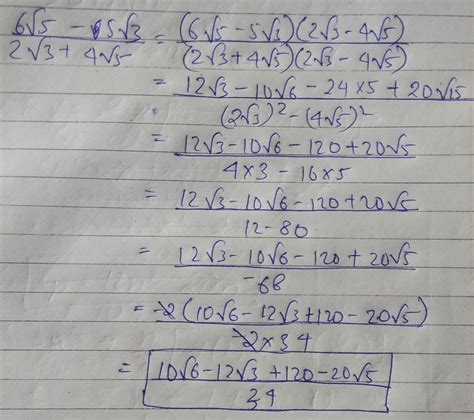 6√5 - 5√3 / 2√3 + 4√5 = (6√5 - 5√3)(2√3 - 4√5) / (2√3 + 4√5)(2√3 - 4√5)
= 12√3 - 10√6 - 24×5 + 20√15 / (2√3)² - (4√5)²
= 12√3 - 10√6 - 120 + 20√5 / 4×3 - 16×5
= 12√3 - 10√6 - 120 + 20√5 / 12 - 80
= 12√3 - 10√6 - 120 + 20√5 / -68
= -2(10√6 - 12√3 + 120 - 20√5) / -2×34
= 10√6 - 12√3 + 120 - 20√5 / 34